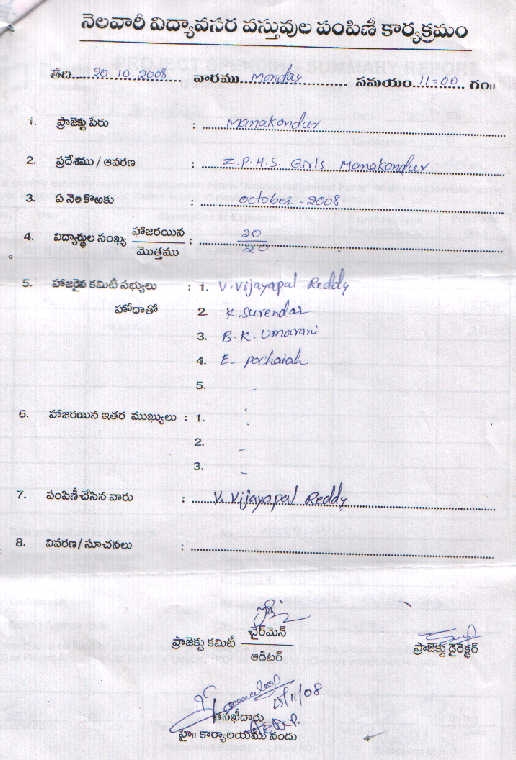 నెలవారీ విద్యావసర వస్తువుల పంపిణీ కార్యక్రమం
తేది..... 20.10.2008 ..... వారము.. Monday ..... సమయం. 11-00 గం॥
1. ప్రాజెక్టు పేరు : Manakondur
2. ప్రదేశము / ఆవరణ : Z.P.H.S. Girls Manakondur
3. ఏ నెల కొఱకు : October - 2008
4. విద్యార్థుల సంఖ్య హాజరయిన : 20
మొత్తము 20
5. హాజరైన కమిటీ సభ్యులు : 1. V. Vijayapal Reddy
హోదాతో 2. K. Surendar
3. B.K. Umarani
4. E. Pochaiah
5. -
6. హాజరయిన ఇతర ముఖ్యులు : 1. -
2. -
3. -
7. పంపిణీ చేసిన వారు : V. Vijayapal Reddy
8. వివరణ / సూచనలు :
ప్రాజెక్టు కమిటీ చైర్మెన్ ప్రాజెక్టు డైరెక్టర్
ఆడిటర్
11/08
తనిఖీదారు
హై॥ కార్యాలయము నందు